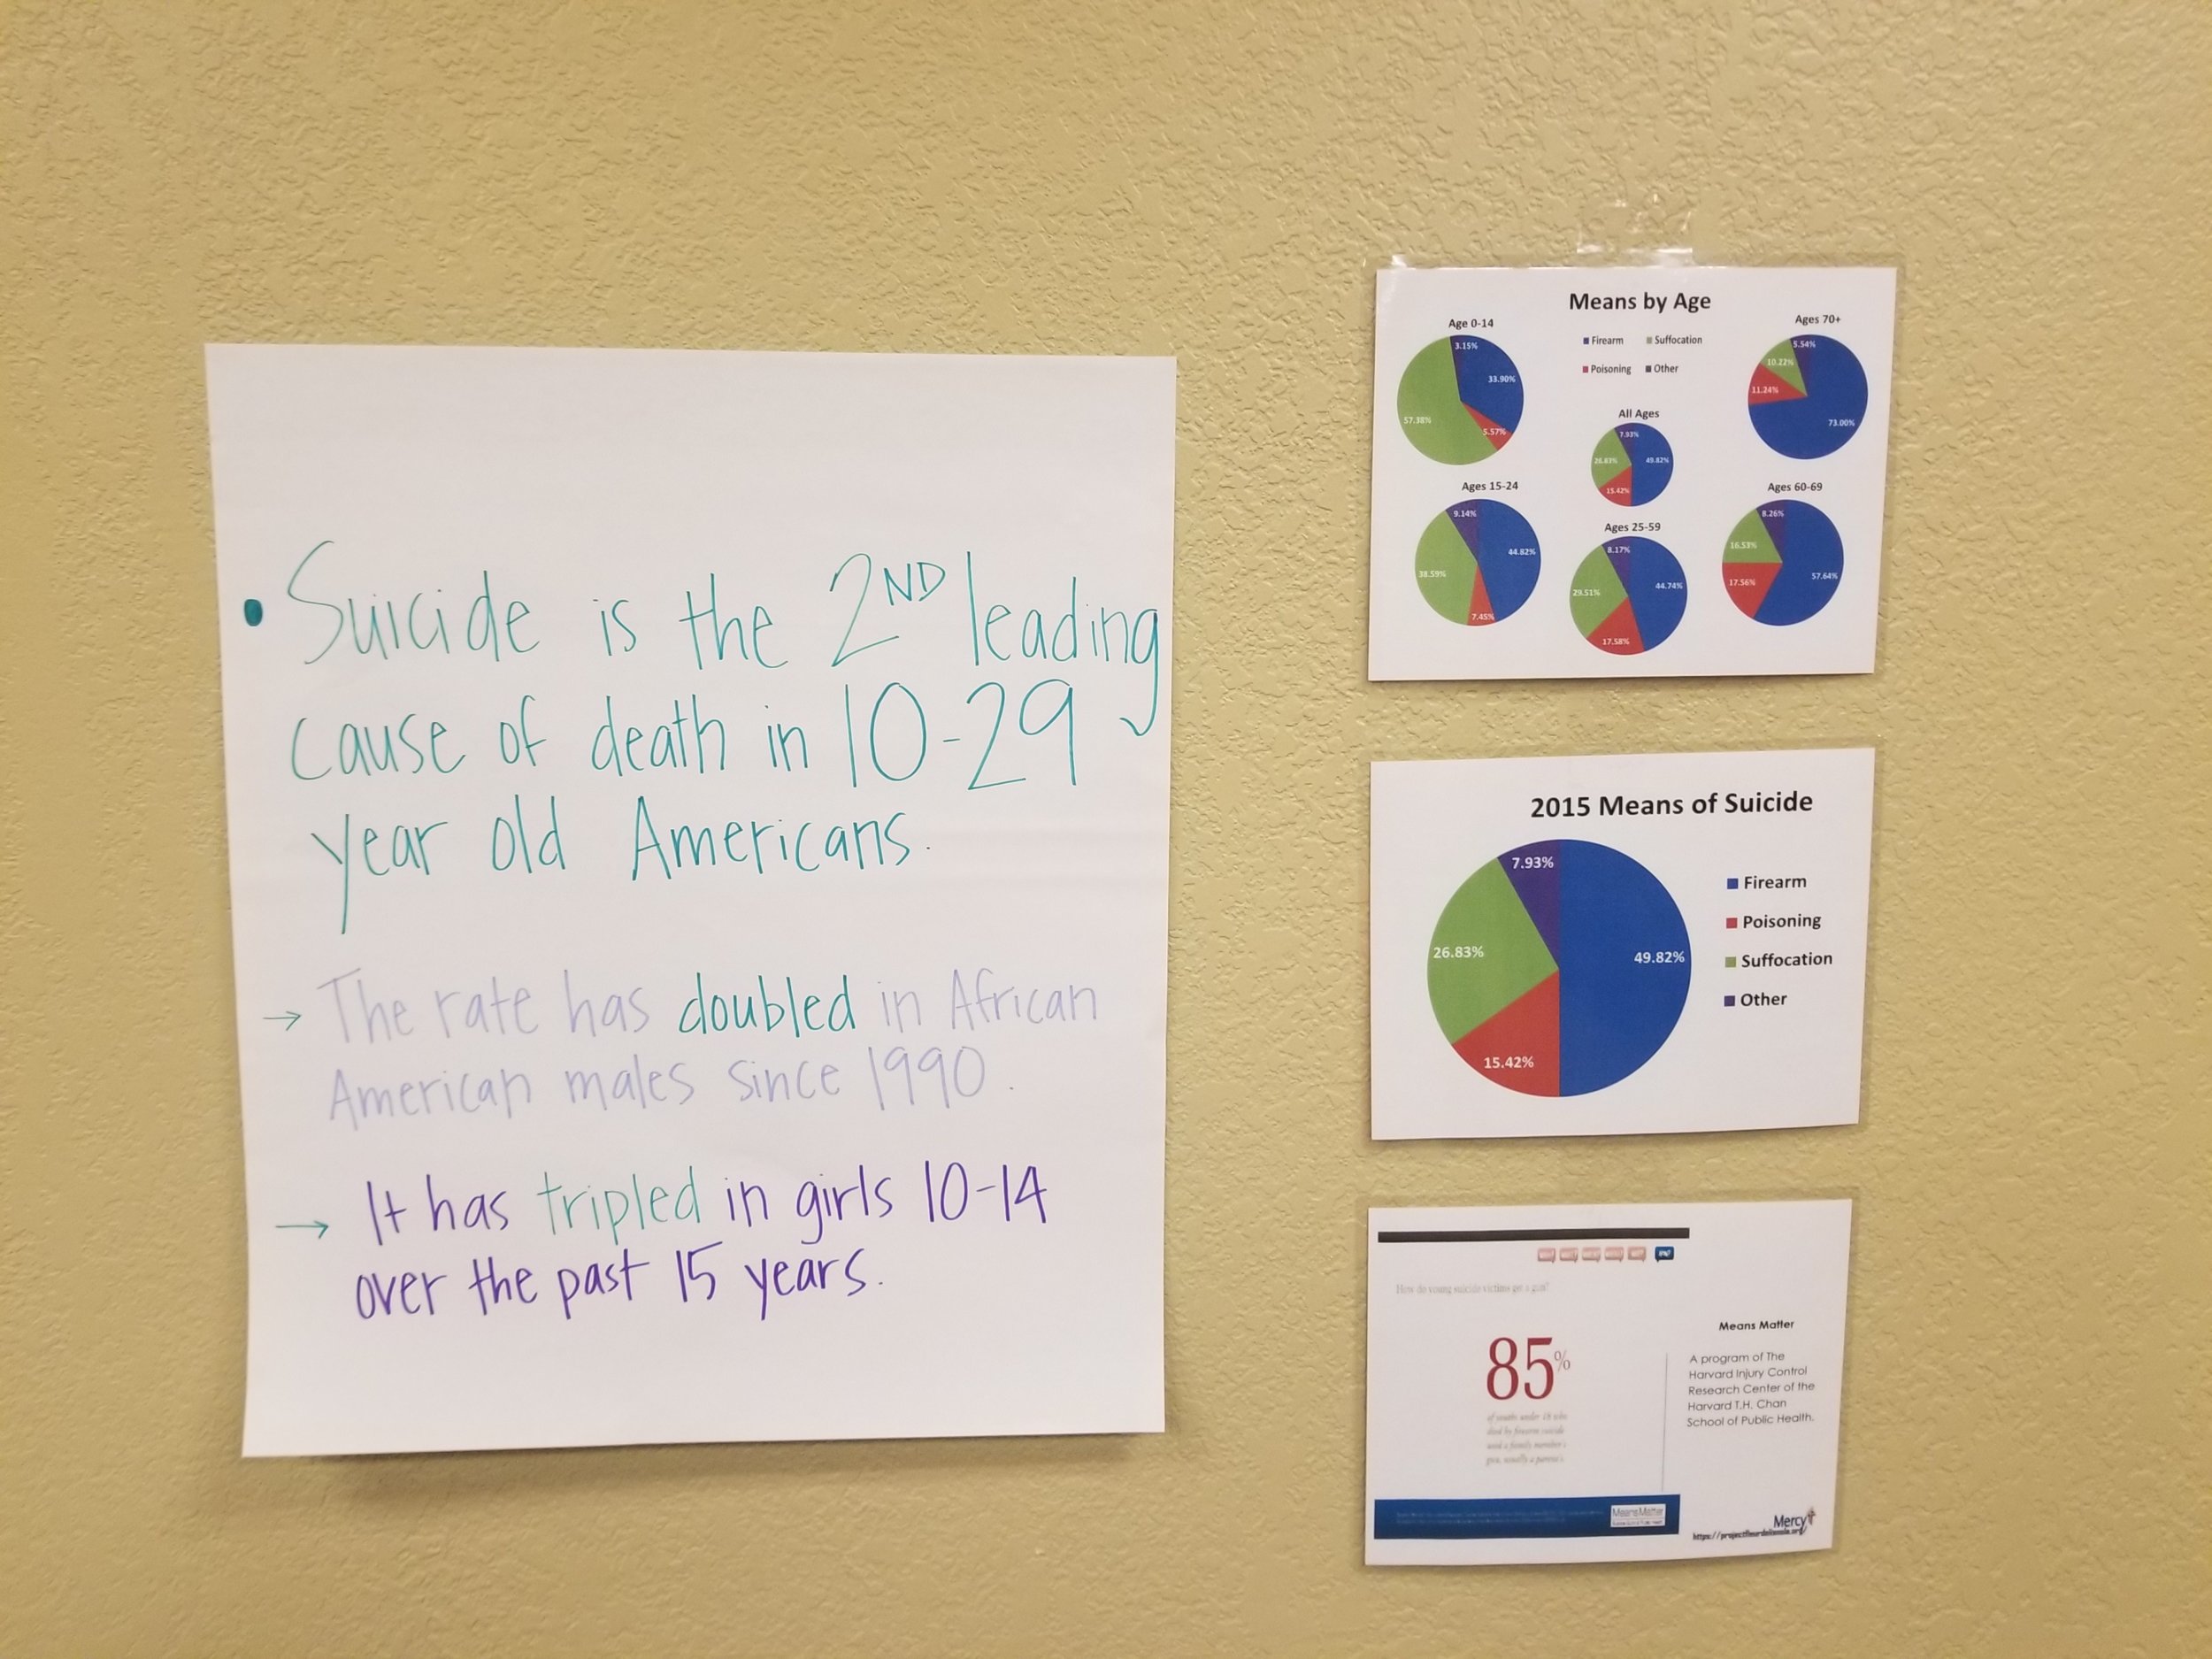 • Suicide is the 2ND leading
cause of death in 10-29
year old Americans.
→ The rate has doubled in African
American males since 1990.
→ It has tripled in girls 10-14
over the past 15 years.
Means by Age
Age 0-14
3.15%
33.90%
57.38%
5.57%
Firearm
Suffocation
Poisoning
Other
Ages 70+
5.54%
10.22%
11.24%
73.00%
All Ages
7.93%
26.83%
49.82%
15.42%
Ages 15-24
9.14%
44.82%
38.59%
7.45%
Ages 25-59
8.17%
44.74%
29.51%
17.58%
Ages 60-69
8.26%
16.53%
57.64%
17.56%
2015 Means of Suicide
7.93%
26.83%
49.82%
15.42%
Firearm
Poisoning
Suffocation
Other
How do young suicide victims get a gun?
85%
of youths under 18 who
died by firearm suicide
used a family member's
gun, usually a parent's
Means Matter
A program of The
Harvard Injury Control
Research Center of the
Harvard T.H. Chan
School of Public Health.
MeansMatter
Mercy